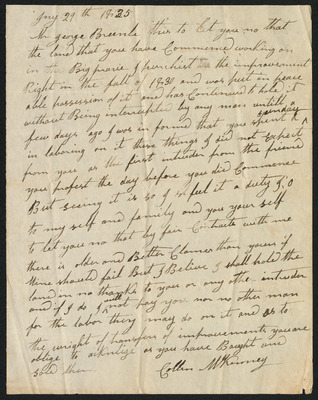 Jany 29th 1835
Mr george Breenle this to let you no that
the land that you have Commenced working on
in the Big prairie I purchest the improvement
Right in the fall of 1830 and was put in peace
able possession of it and has Continued to hold it
without Being interrupted by any man untill a
few days ago I was in formed that you spent Sunday
in laboring on it these things I did not Expect
from you as the first intruder from the friend
you profest the day before you did Commence
But seeing it is so I feel it a duty I O
to my self and family and you your self
to let you no that by fair Contracts with me
there is older and Better Claimes than yours if
mine should fail But I Believe I shall hold the
land in no thanks to you or any other intruder
and if I do I will not pay you nor no other man
for the labor they may do on it and as to
the wright of transfers of improvements you are
oblige to as you have Bought and
sold them
Collin McKinney